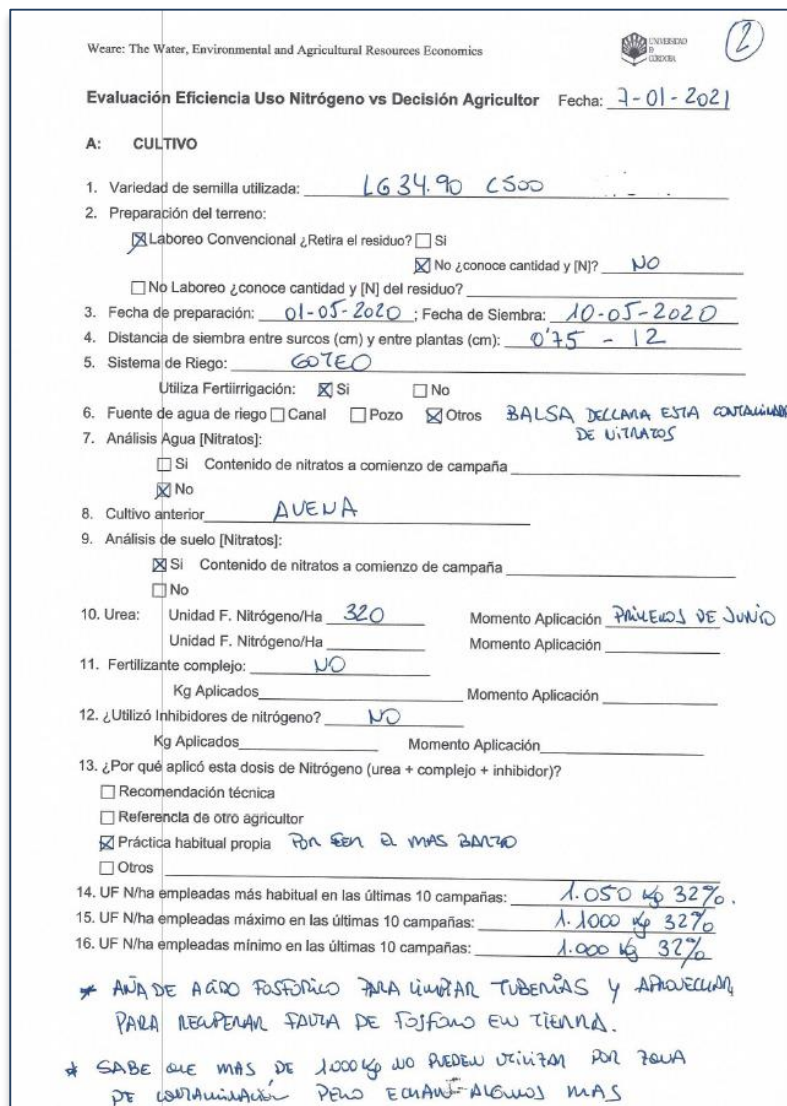 Weare: The Water, Environmental and Agricultural Resources Economics
UNIVERSIDAD
D
CORDOBA
2
Evaluación Eficiencia Uso Nitrógeno vs Decisión Agricultor Fecha: 7-01-2021
A: CULTIVO
1. Variedad de semilla utilizada: LG34.90 C500
2. Preparación del terreno:
☒ Laboreo Convencional ¿Retira el residuo? ☐ Si
☒ No ¿conoce cantidad y [N]? NO
☐ No Laboreo ¿conoce cantidad y [N] del residuo?
3. Fecha de preparación: 01-05-2020 ; Fecha de Siembra: 10-05-2020
4. Distancia de siembra entre surcos (cm) y entre plantas (cm): 0'75 - 12
5. Sistema de Riego: GOTEO
Utiliza Fertiirrigación: ☒ Si ☐ No
6. Fuente de agua de riego ☐ Canal ☐ Pozo ☒ Otros BALSA DECLARA ESTA CONTAMINADA
DE NITRATOS
7. Análisis Agua [Nitratos]:
☐ Si Contenido de nitratos a comienzo de campaña
☒ No
8. Cultivo anterior AVENA
9. Análisis de suelo [Nitratos]:
☒ Si Contenido de nitratos a comienzo de campaña
☐ No
10. Urea: Unidad F. Nitrógeno/Ha 320 Momento Aplicación PRIMEROS DE JUNIO
Unidad F. Nitrógeno/Ha Momento Aplicación
11. Fertilizante complejo: NO
Kg Aplicados Momento Aplicación
12. ¿Utilizó Inhibidores de nitrógeno? NO
Kg Aplicados Momento Aplicación
13. ¿Por qué aplicó esta dosis de Nitrógeno (urea + complejo + inhibidor)?
☐ Recomendación técnica
☐ Referencia de otro agricultor
☒ Práctica habitual propia POR SER EL MAS BARATO
☐ Otros
14. UF N/ha empleadas más habitual en las últimas 10 campañas: 1.050 kg 32%.
15. UF N/ha empleadas máximo en las últimas 10 campañas: 1.1000 kg 32%
16. UF N/ha empleadas mínimo en las últimas 10 campañas: 1.000 kg 32%
* AÑADE ACIDO FOSFORICO PARA LIMPIAR TUBERIAS Y APROVECHAR
PARA RECUPERAR FALTA DE FOSFORO EN TIERRA.
* SABE QUE MAS DE 1000 kg NO PUEDEN UTILIZAR POR ZONA
DE CONTAMINACIÓN PERO ECHAN ALGUNOS MAS